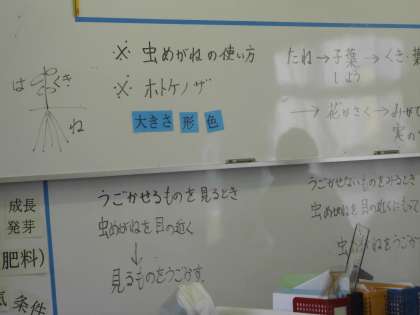 ※ 虫めがねの使い方
※ ホトケノザ
大きさ 形 色
は
くき
ね
たね→子葉→くき・葉
しよう
→花がさく→みが
実の
うごかせるものを見るとき
虫めがねを目の近く
↓
見るものをうごかす
うごかせないものをみるとき
虫めがねを目の近くにもって
虫めがねをうごか
成長
発芽
肥料)
条件